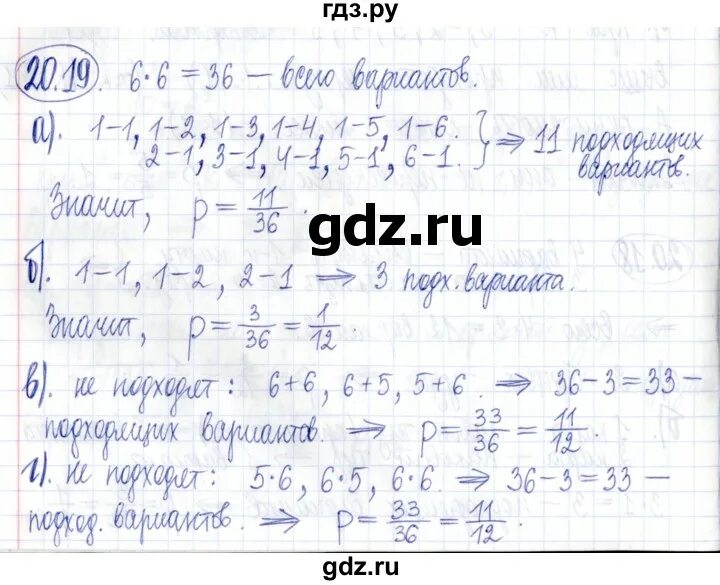 гдз.ру
20.19. 6·6 = 36 — всего вариантов.
а). 1-1, 1-2, 1-3, 1-4, 1-5, 1-6.
2-1, 3-1, 4-1, 5-1, 6-1. } ⇒ 11 подходящих вариантов.
Значит, p = 11/36.
gdz.ru
б). 1-1, 1-2, 2-1 ⇒ 3 подх. варианта.
Значит, p = 3/36 = 1/12.
в). не подходят: 6+6, 6+5, 5+6. ⇒ 36-3=33 —
подходящих вариантов ⇒ p = 33/36 = 11/12.
г). не подходят: 5·6, 6·5, 6·6. ⇒ 36-3=33 —
подход. вариантов. ⇒ p = 33/36 = 11/12.
gdz.ru